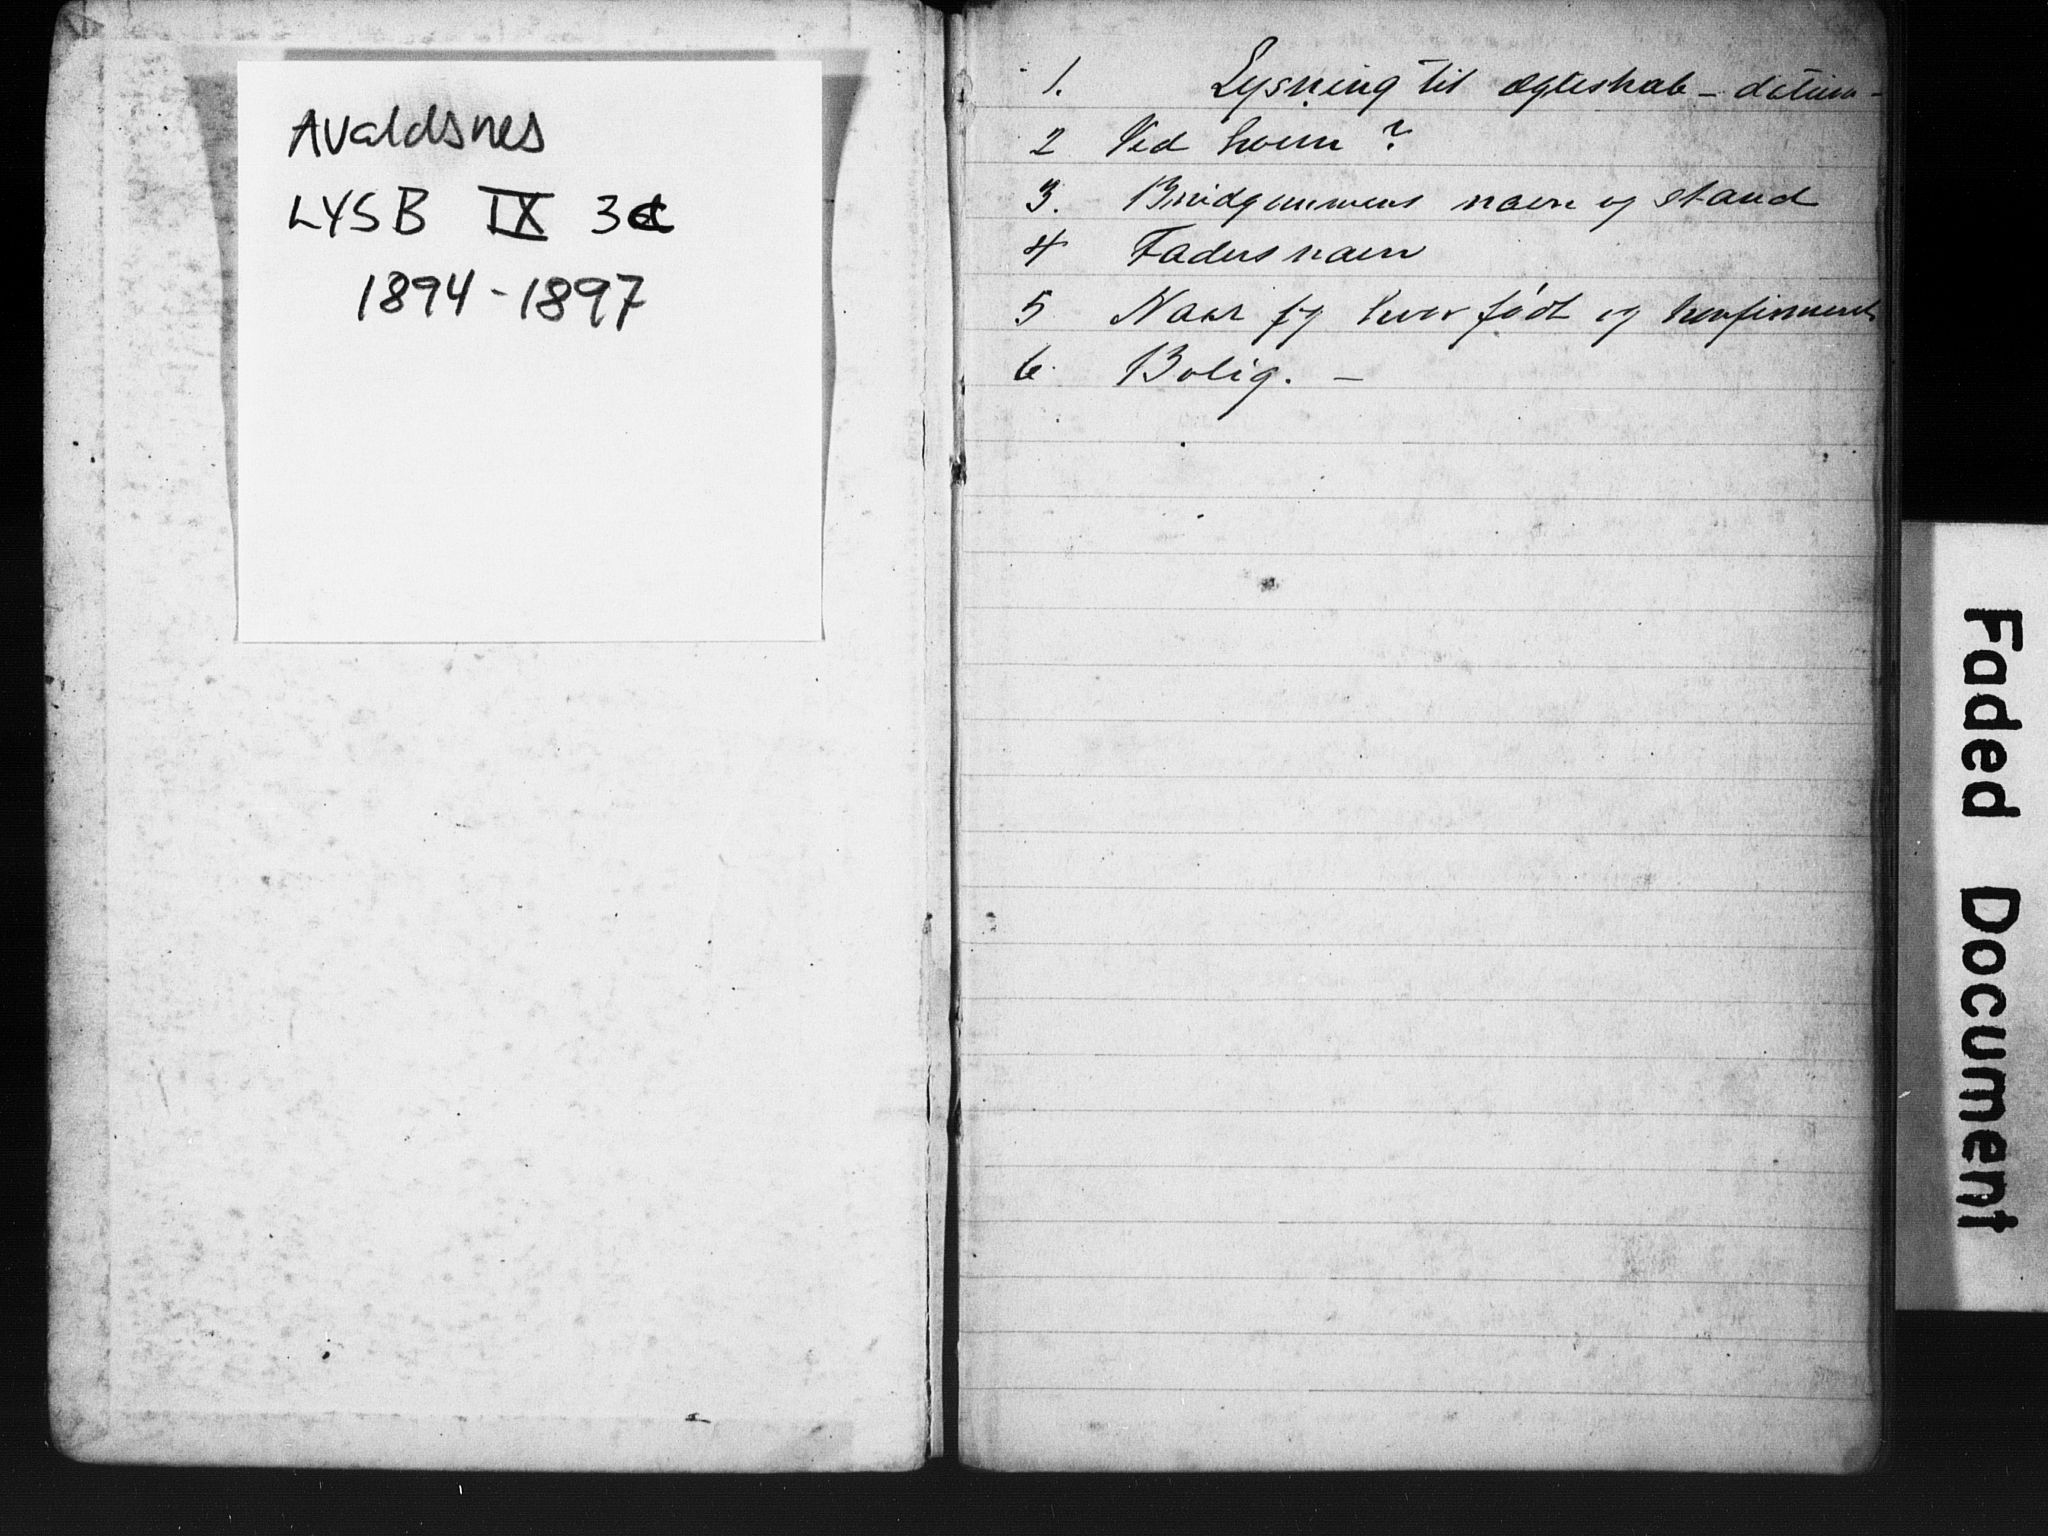 Avaldsnes
LYSB IX 3
1894-1897
1. Lysning til ægteskab - datum -
2 Ved hvem ?
3. Brudgommens navn og stand
4 Faders navn
5 Naar og hvor født og konfirmeret
6. Bolig. -
Faded Document